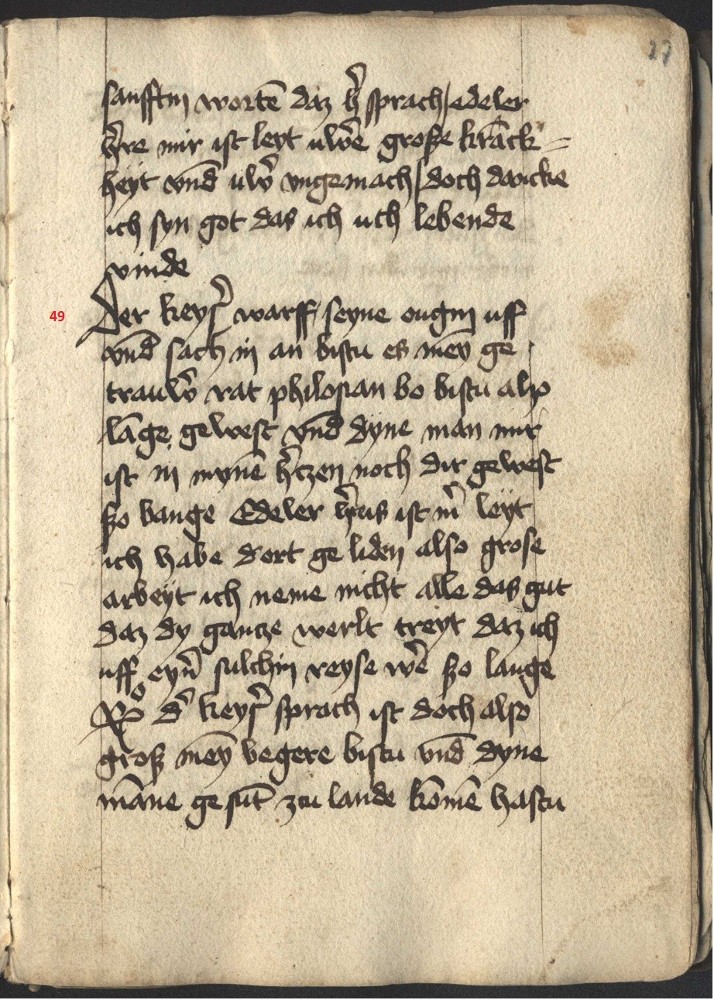 27
sanfftin wortē daz h̄ sprach / edeler
h̄re mir ist leyt uwē große krāck=
heyt vnd uw̄ vngemach / doch dancke
ich syn got das ich uch lebende
vinde
49 Der keys̄ warff seyne ougin uff
vnd sach in an bistu es mey ge
trauw̄ rat philosian bo bistu also
lāge gewest vnd dyne man mir
ist in mynē h̄tzen noch dir gewest
ßo bange Edeler h̄ris ist m̄ leyt
ich habe dort ge liden also grose
arbeyt ich neme nicht alle das gut
daz dy gantze werlt treyt daz ich
uff eyn̄ sulchin reyse wē ßo lange
d̄ keys̄ sprach ist doch also
groß mey begere bistu vnd dyne
māne ge sūt zcu lande kōmē hastu